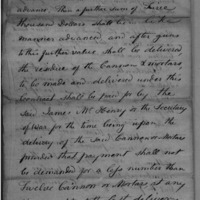 advance. Then a further sum of Three
thousand dollars shall be in like
manner advanced and after guns
to this further value shall be delivered
the residue of the Cannon & Mortars
to be made and delivered under this
Contract shall be paid for by the
said James McHenry or the Secretary
of War for the time being upon the
delivery of the said Cannon or Mortars
provided that payment shall not
be demanded for a less number than
Twelve Cannon or Mortars at any
the last deliver